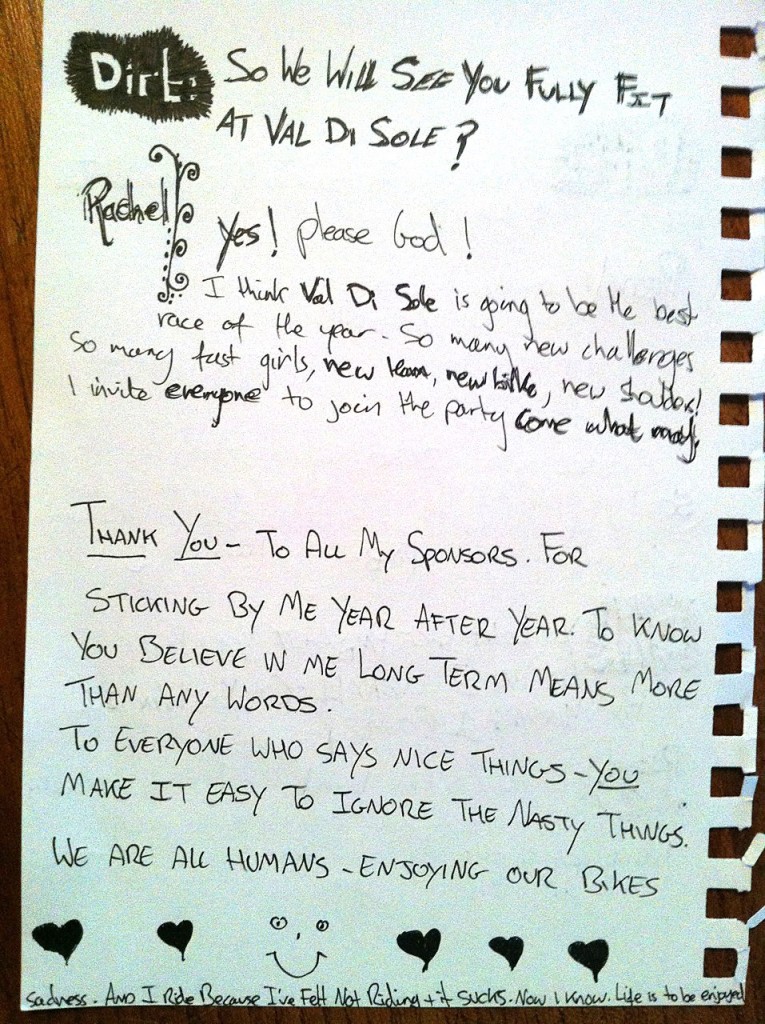 Dirt: So We Will See You Fully Fit
At Val Di Sole?
Rachel
Yes! please God!
I think Val Di Sole is going to be the best
race of the year. So many new challenges
So many fast girls, new team, new bike, new shoulder!
I invite everyone to join the party come what may.
Thank You - To All My Sponsors. For
Sticking By Me Year After Year. To Know
You Believe in me Long Term Means More
Than Any Words.
To Everyone who says nice things - You
Make It Easy To Ignore The Nasty Things.
We Are All Humans - Enjoying Our Bikes
sadness. And I Ride Because I've Felt Not Riding + it sucks. Now I Know. Life is to be enjoyed